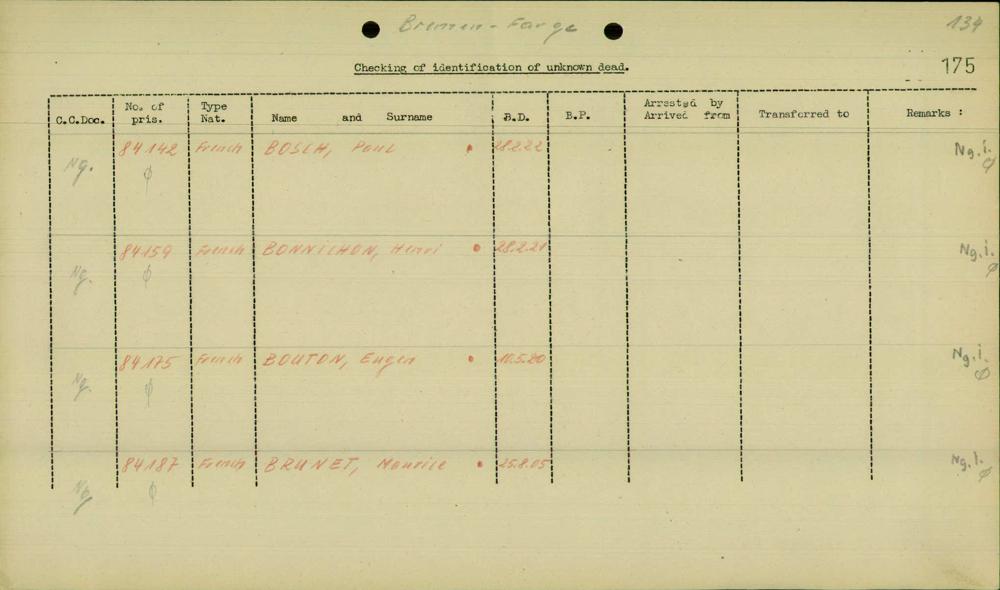 Bremen-Farge 134
Checking of identification of unknown dead. 175
C.C.Doc. No. of pris. Type Nat. Name and Surname B.D. B.P. Arrested by Arrived from Transferred to Remarks :
Ng. 84142 ϕ French BOSCH, Paul • 28.2.22 Ng.i. ϕ
Ng. 84159 ϕ French BONNICHON, Henri • 28.2.21 Ng.i. ϕ
Ng. 84175 ϕ French BOUTON, Eugen • 10.5.20 Ng.i. ϕ
Ng. 84187 ϕ French BRUNET, Maurice • 25.8.05 Ng.i. ϕ